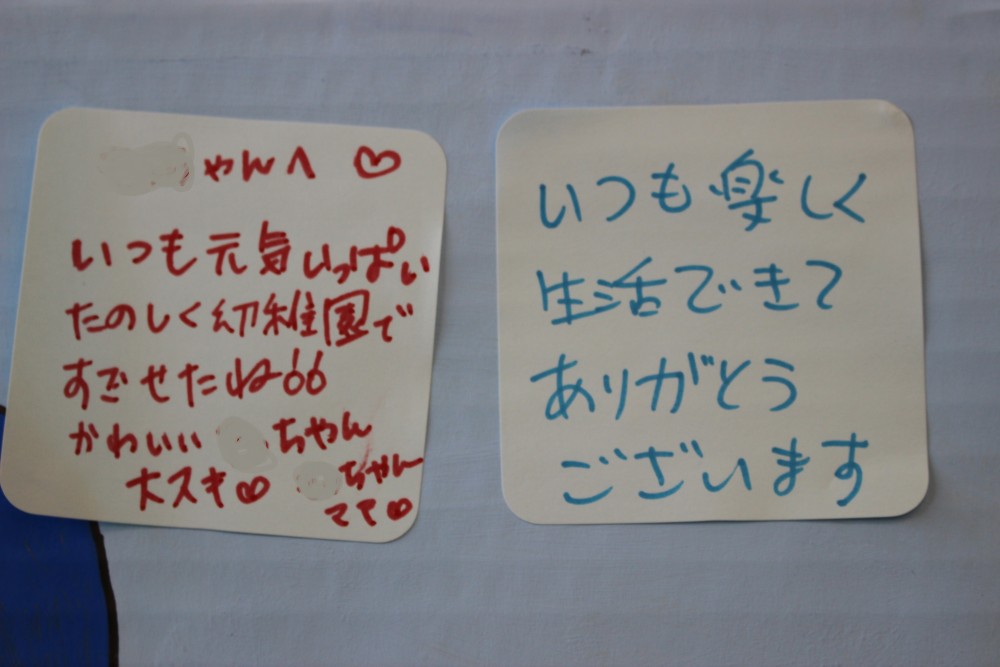 ゃんへ ♡
いつも元気いっぱい
たのしく幼稚園で
すごせたね66
かわいい ちゃん
大スキ♡
ちゃん
ママ♡
いつも楽しく
生活できて
ありがとう
ございます